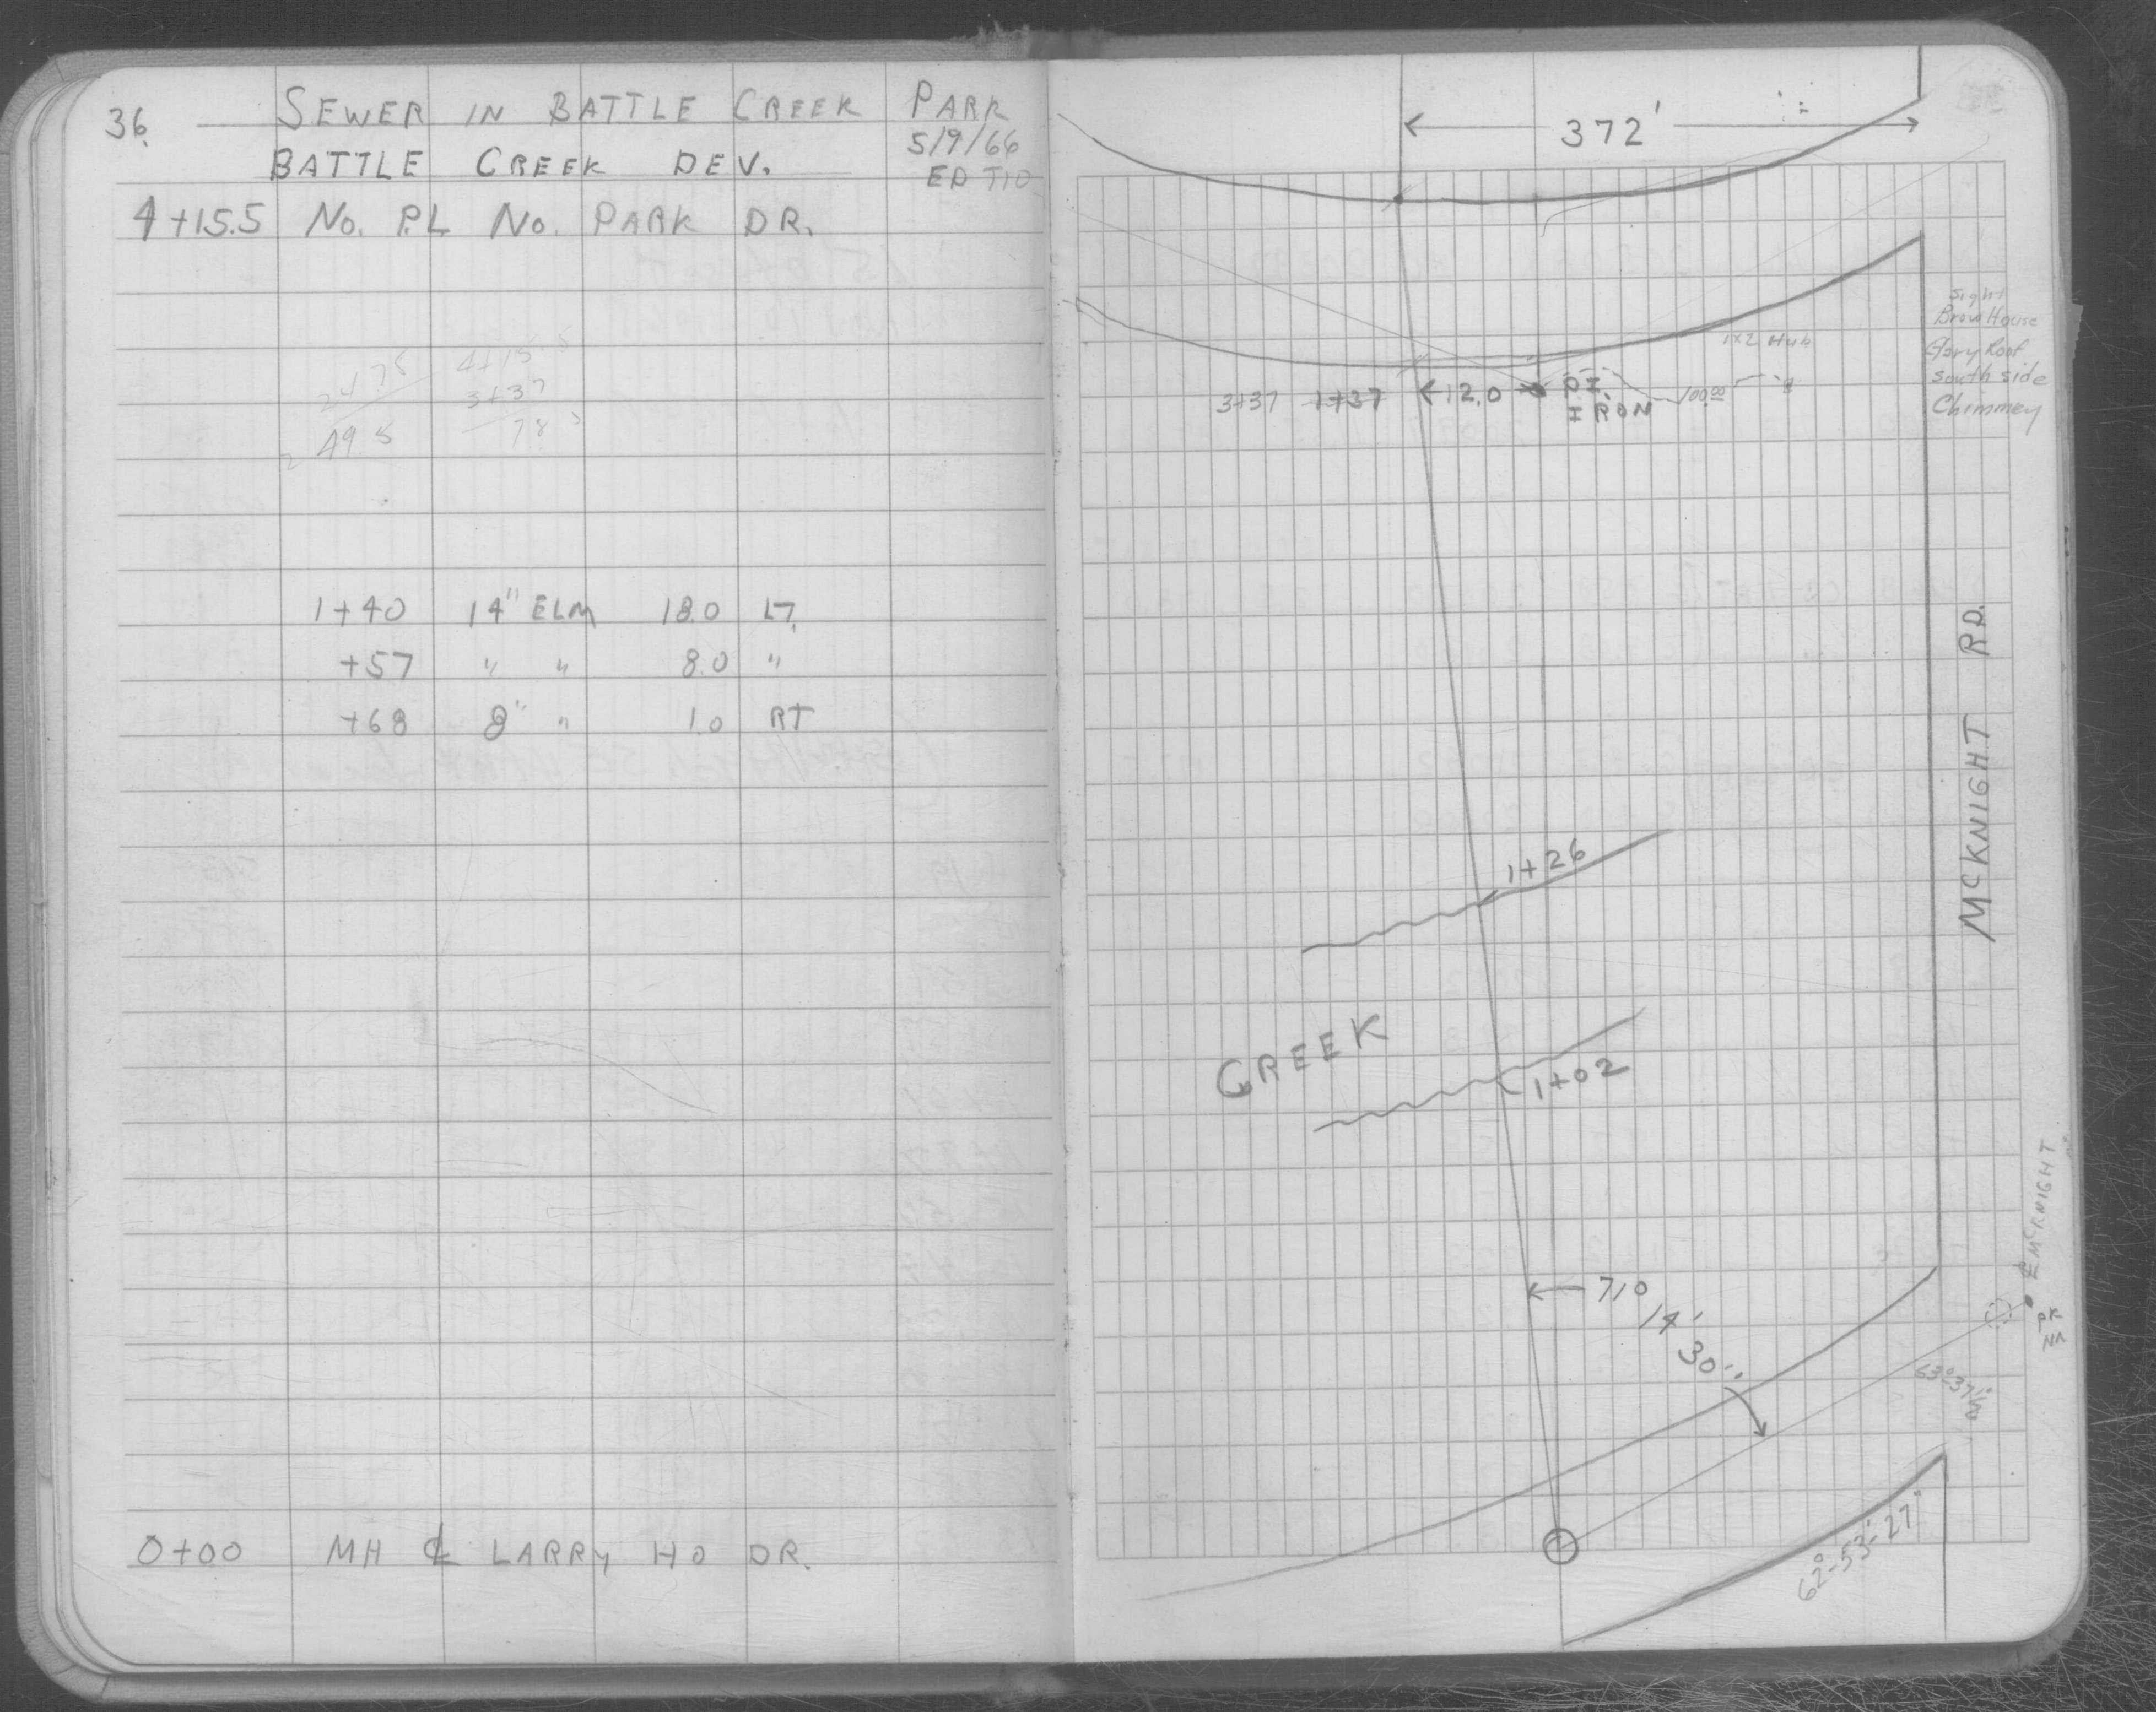 36.
SEWER IN BATTLE CREEK PARK
5/9/66
BATTLE CREEK DEV.
ED TIO
4+15.5 NO. P.L. NO. PARK DR.
4+15.5
3+37
78 5
2475
2 49 5
1+40 14" ELM 18.0 LT.
+57 " " 8.0 "
+68 8" " 1.0 RT
0+00 MH ℄ LARRY HO DR.
372'
Sight
House
Roof
south side
Chimmey
1x2 Hub
3+37 1+37 12.0 P.I.
IRON
100.00
MCKNIGHT RD.
1+26
CREEK
1+02
℄ MCKNIGHT
PK
710
14'
30"
62°-53'-27"